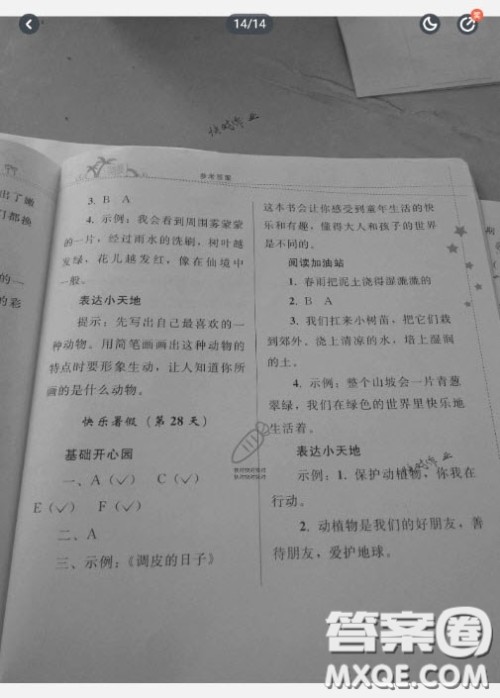 14/14
买
快对作业
参考答案
出了嫩
们都换
的一
的彩
3. B A
4. 示例：我会看到周围雾蒙蒙
的一片，经过雨水的洗刷，树叶越
发绿，花儿越发红，像在仙境中
一般。
表达小天地
提示：先写出自己最喜欢的一
种动物。用简笔画画出这种动物的
特点时要形象生动，让人知道你所
画的是什么动物。
快乐暑假（第28天）
基础开心园
一、A（✓） C（✓）
E（✓） F（✓）
二、A
三、示例：《调皮的日子》
这本书会让你感受到童年生活的快
乐和有趣，懂得大人和孩子的世界
是不同的。
阅读加油站
1. 春雨把泥土浇得湿漉漉的
2. B A
3. 我们扛来小树苗，把它们栽
到郊外、浇上清凉的水，培上湿润
的土。
4. 示例：整个山坡会一片青葱
翠绿，我们在绿色的世界里快乐地
生活着。
表达小天地
示例：1. 保护动植物，你我在
行动。
2. 动植物是我们的好朋友，善
待朋友，爱护地球。
快对作业
答案圈
MXQE.COM